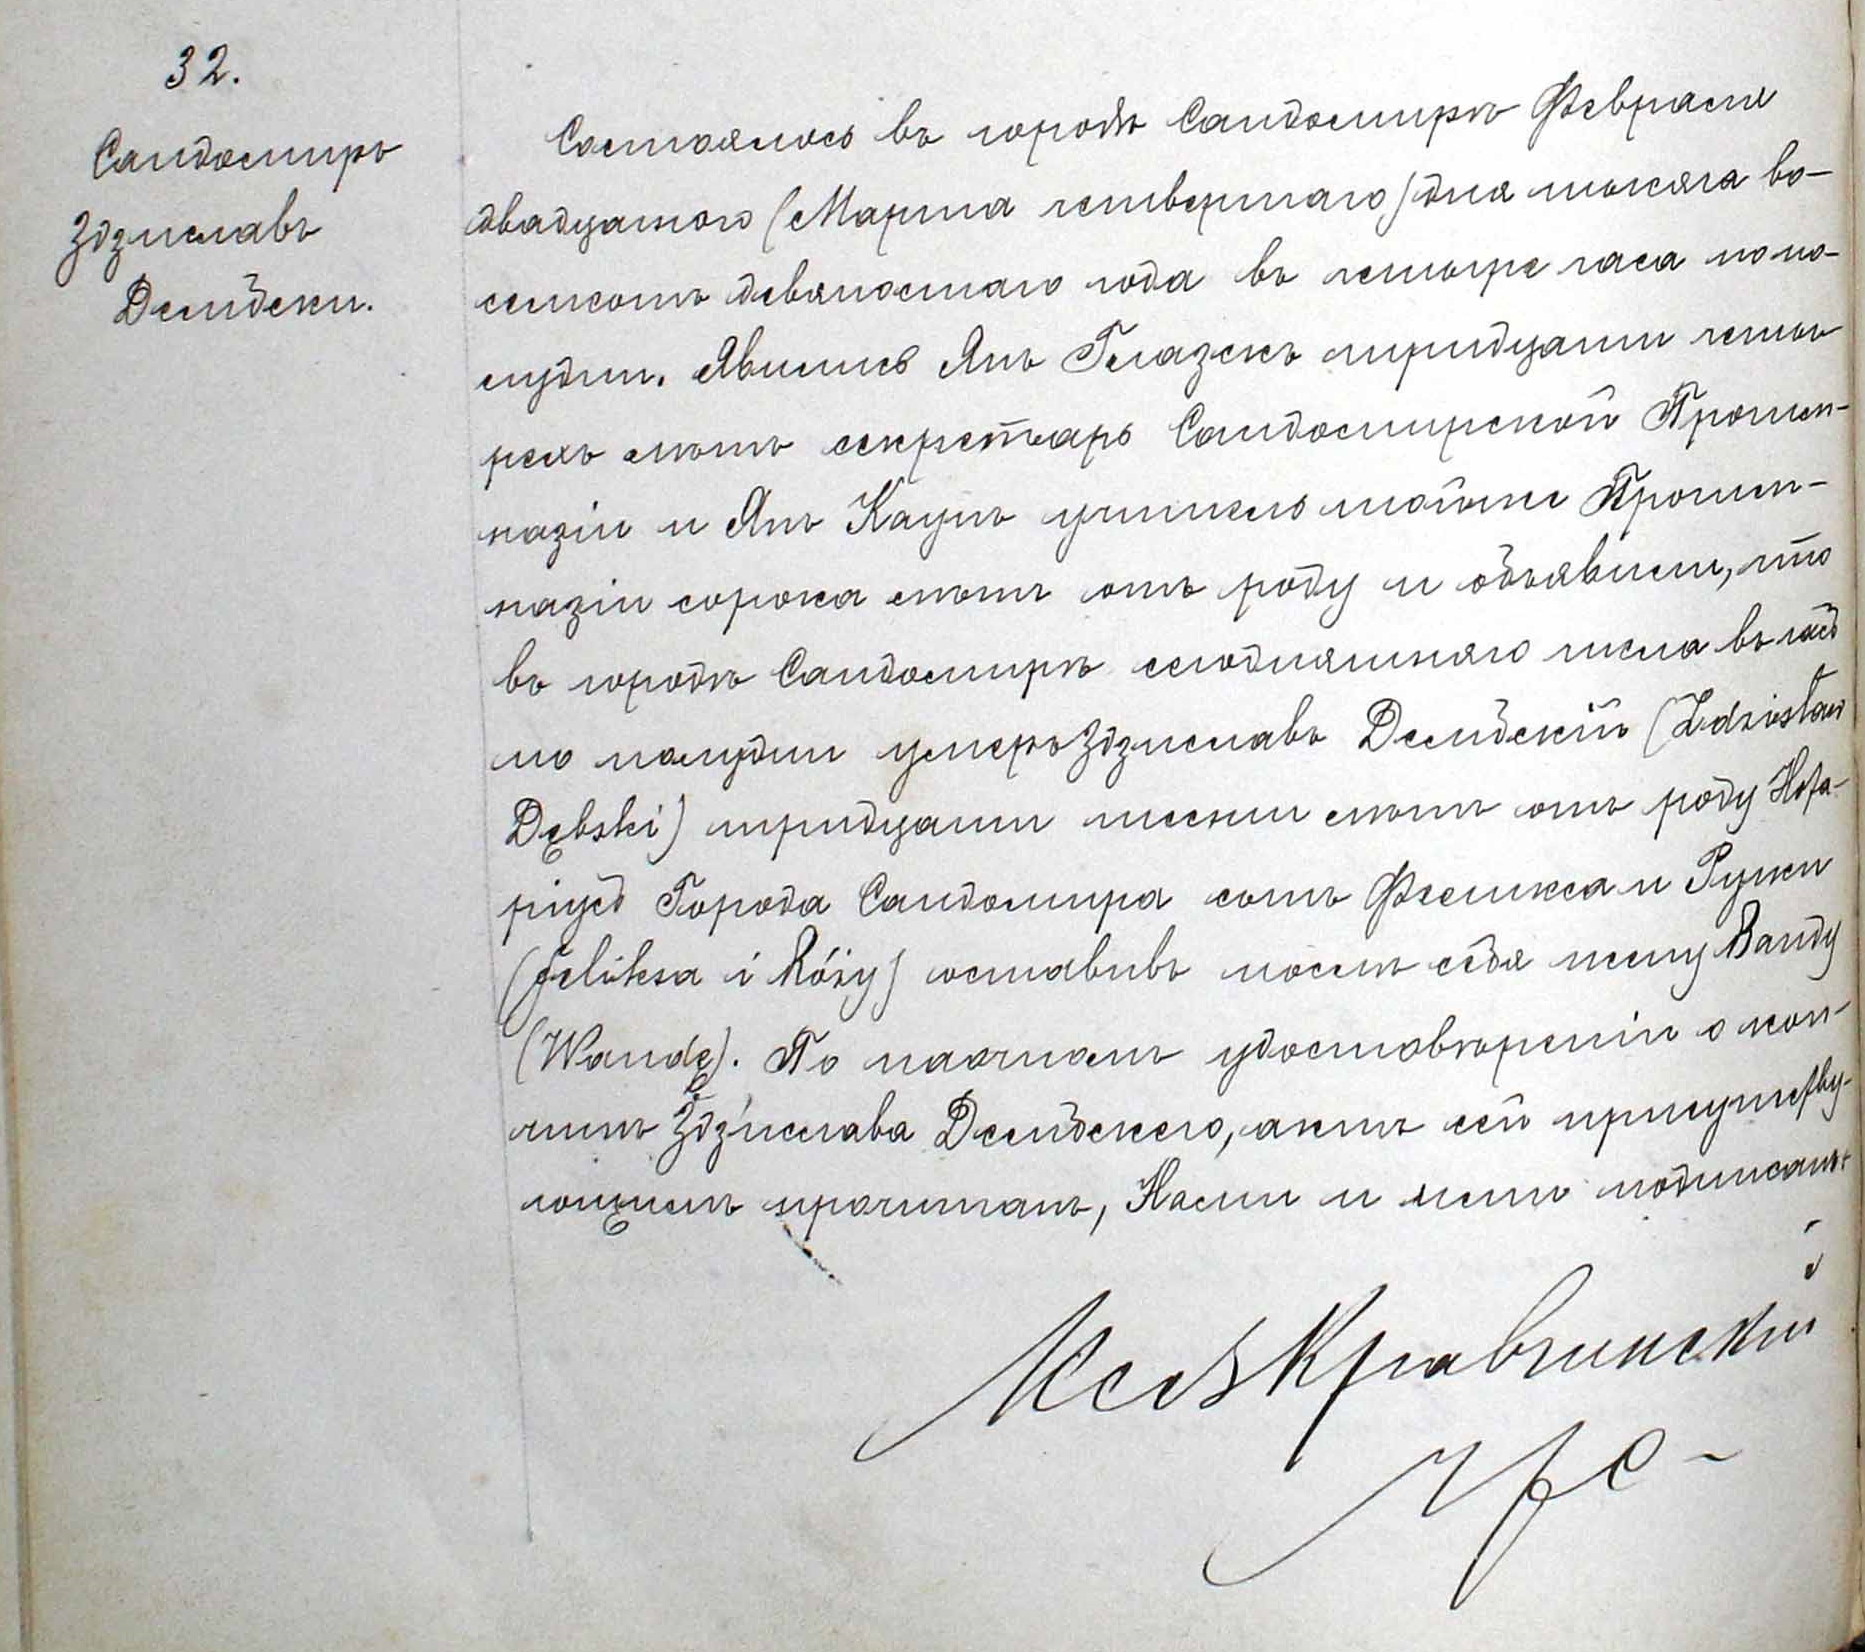 32.
Сандомиръ
Здзиславъ
Дембски.
Состоялось въ городѣ Сандомирѣ Февраля
двадцатого (Марта четвертаго) дня тысяча во-
семсотъ девяностаго года въ четыре часа по по-
лудни. Явились Янъ Глазекъ тридцати четы-
рехъ лѣтъ секретарь Сандомирской Прогим-
назіи и Янъ Каумъ учитель тойже Прогим-
назіи сорока лѣтъ отъ роду и объявили, что
въ городѣ Сандомирѣ сегодняшняго числа въ часъ
по полудни умеръ Здзиславъ Дембскій (Zdzisław
Dębski) тридцати шести лѣтъ отъ роду Нота-
ріусъ Города Сандомира сынъ Феликса и Ружи
(Feliksa i Róży) оставивъ послѣ себя жену Ванду
(Wandę). По наочномъ удостовѣреніи о кон-
чинѣ Здзислава Дембскего, актъ сей присутству-
ющимъ прочитанъ, Нами и ими подписанъ
Кс Кравчинскій